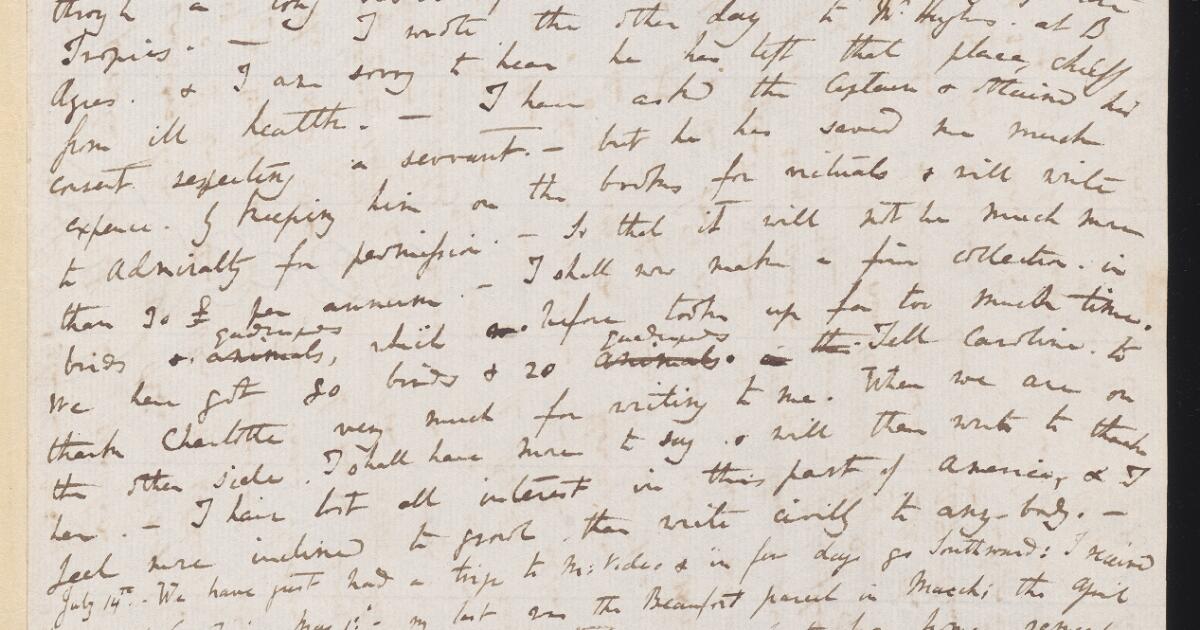 through a long
Tropics. — I wrote the other day to Mr Hughes. at B
Ayres. & I am sorry to hear he has left that place, chiefly
from ill health. — I have asked the Captain & obtained his
consent respecting a servant. — but he has saved me much
expence. by keeping him on the books for victuals & will write
to Admiralty for permission. — So that it will not be much more
than 30 £ per annum. — I shall now make a fine collection. in
birds & animals, quadrupeds which before took up far too much time.
We have got 80 birds & 20 animals. quadrupeds in the. Tell Caroline. to
thank Charlotte very much for writing to me. When we are on
the other side. I shall have more to say. & will then write to thank
her. — I have lost all interest in this part of America, & I
feel more inclined to growl than write civilly to any-body. —
July 14th. — We have just had a trip to M: Video & in few days go Southward: I received
May 1st. my last was the Beaufort parcel in March; the April